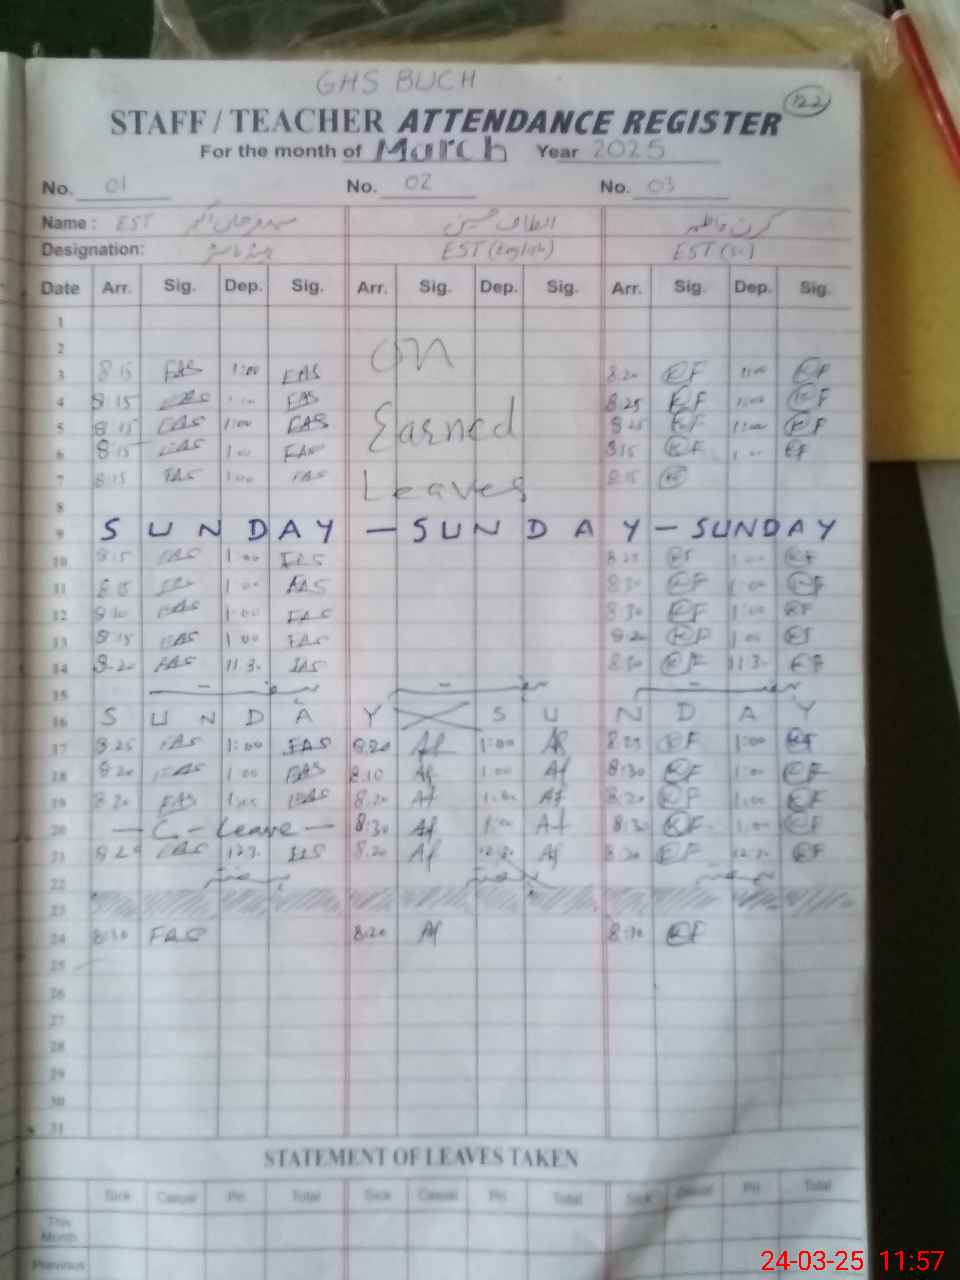 GHS BUCH
122
STAFF / TEACHER ATTENDANCE REGISTER
For the month of March Year 2025
No. 01 No. 02 No. 03
Name : EST الطاف حسین کرن فاطمہ
Designation: EST (English) EST (Sc)
Date Arr. Sig. Dep. Sig. Arr. Sig. Dep. Sig. Arr. Sig. Dep. Sig.
1
2 On
3 8:15 FAS 1:00 FAS 8:20 KF 1:00 KF
4 8:15 FAS 1:00 FAS Earned 8:25 KF 1:00 KF
5 8:15 FAS 1:00 FAS 8:25 KF 1:00 KF
6 8:15 FAS 1:00 FAS 8:15 KF 1:00 KF
7 8:15 FAS 1:00 FAS Leaves 8:15 K
8
9 SUNDAY – SUNDAY – SUNDAY
10 8:15 FAS 1:00 FAS 8:25 KF 1:00 KF
11 8:15 FAS 1:00 FAS 8:30 KF 1:00 KF
12 FAS 1:00 FAS 8:30 KF 1:00 KF
13 8:15 FAS 1:00 FAS 8:20 KF 1:00 KF
14 8:20 FAS 11:30 FAS KF 11:30 KF
15
16 SUNDAY SUNDAY
17 8:25 FAS 1:00 FAS 8:20 Af 1:00 Af KF 1:00 KF
18 8:20 FAS 1:00 FAS 8:10 Af 1:00 Af 8:30 KF 1:00 KF
19 8:20 FAS 1:00 FAS 8:20 Af 1:00 Af 8:20 KF 1:00 KF
20 — C – Leave — 8:30 Af 1:00 Af 8:30 KF 1:00 KF
21 FAS FAS 8:20 Af 12:30 Af KF 12:30 KF
22
23
24 8:30 FAS 8:20 Af KF
25
26
27
28
29
30
31
STATEMENT OF LEAVES TAKEN
Sick Casual Pri Total Sick Casual Pri Total Sick Casual Pri Total
This
Month
Previous
24-03-25 11:57